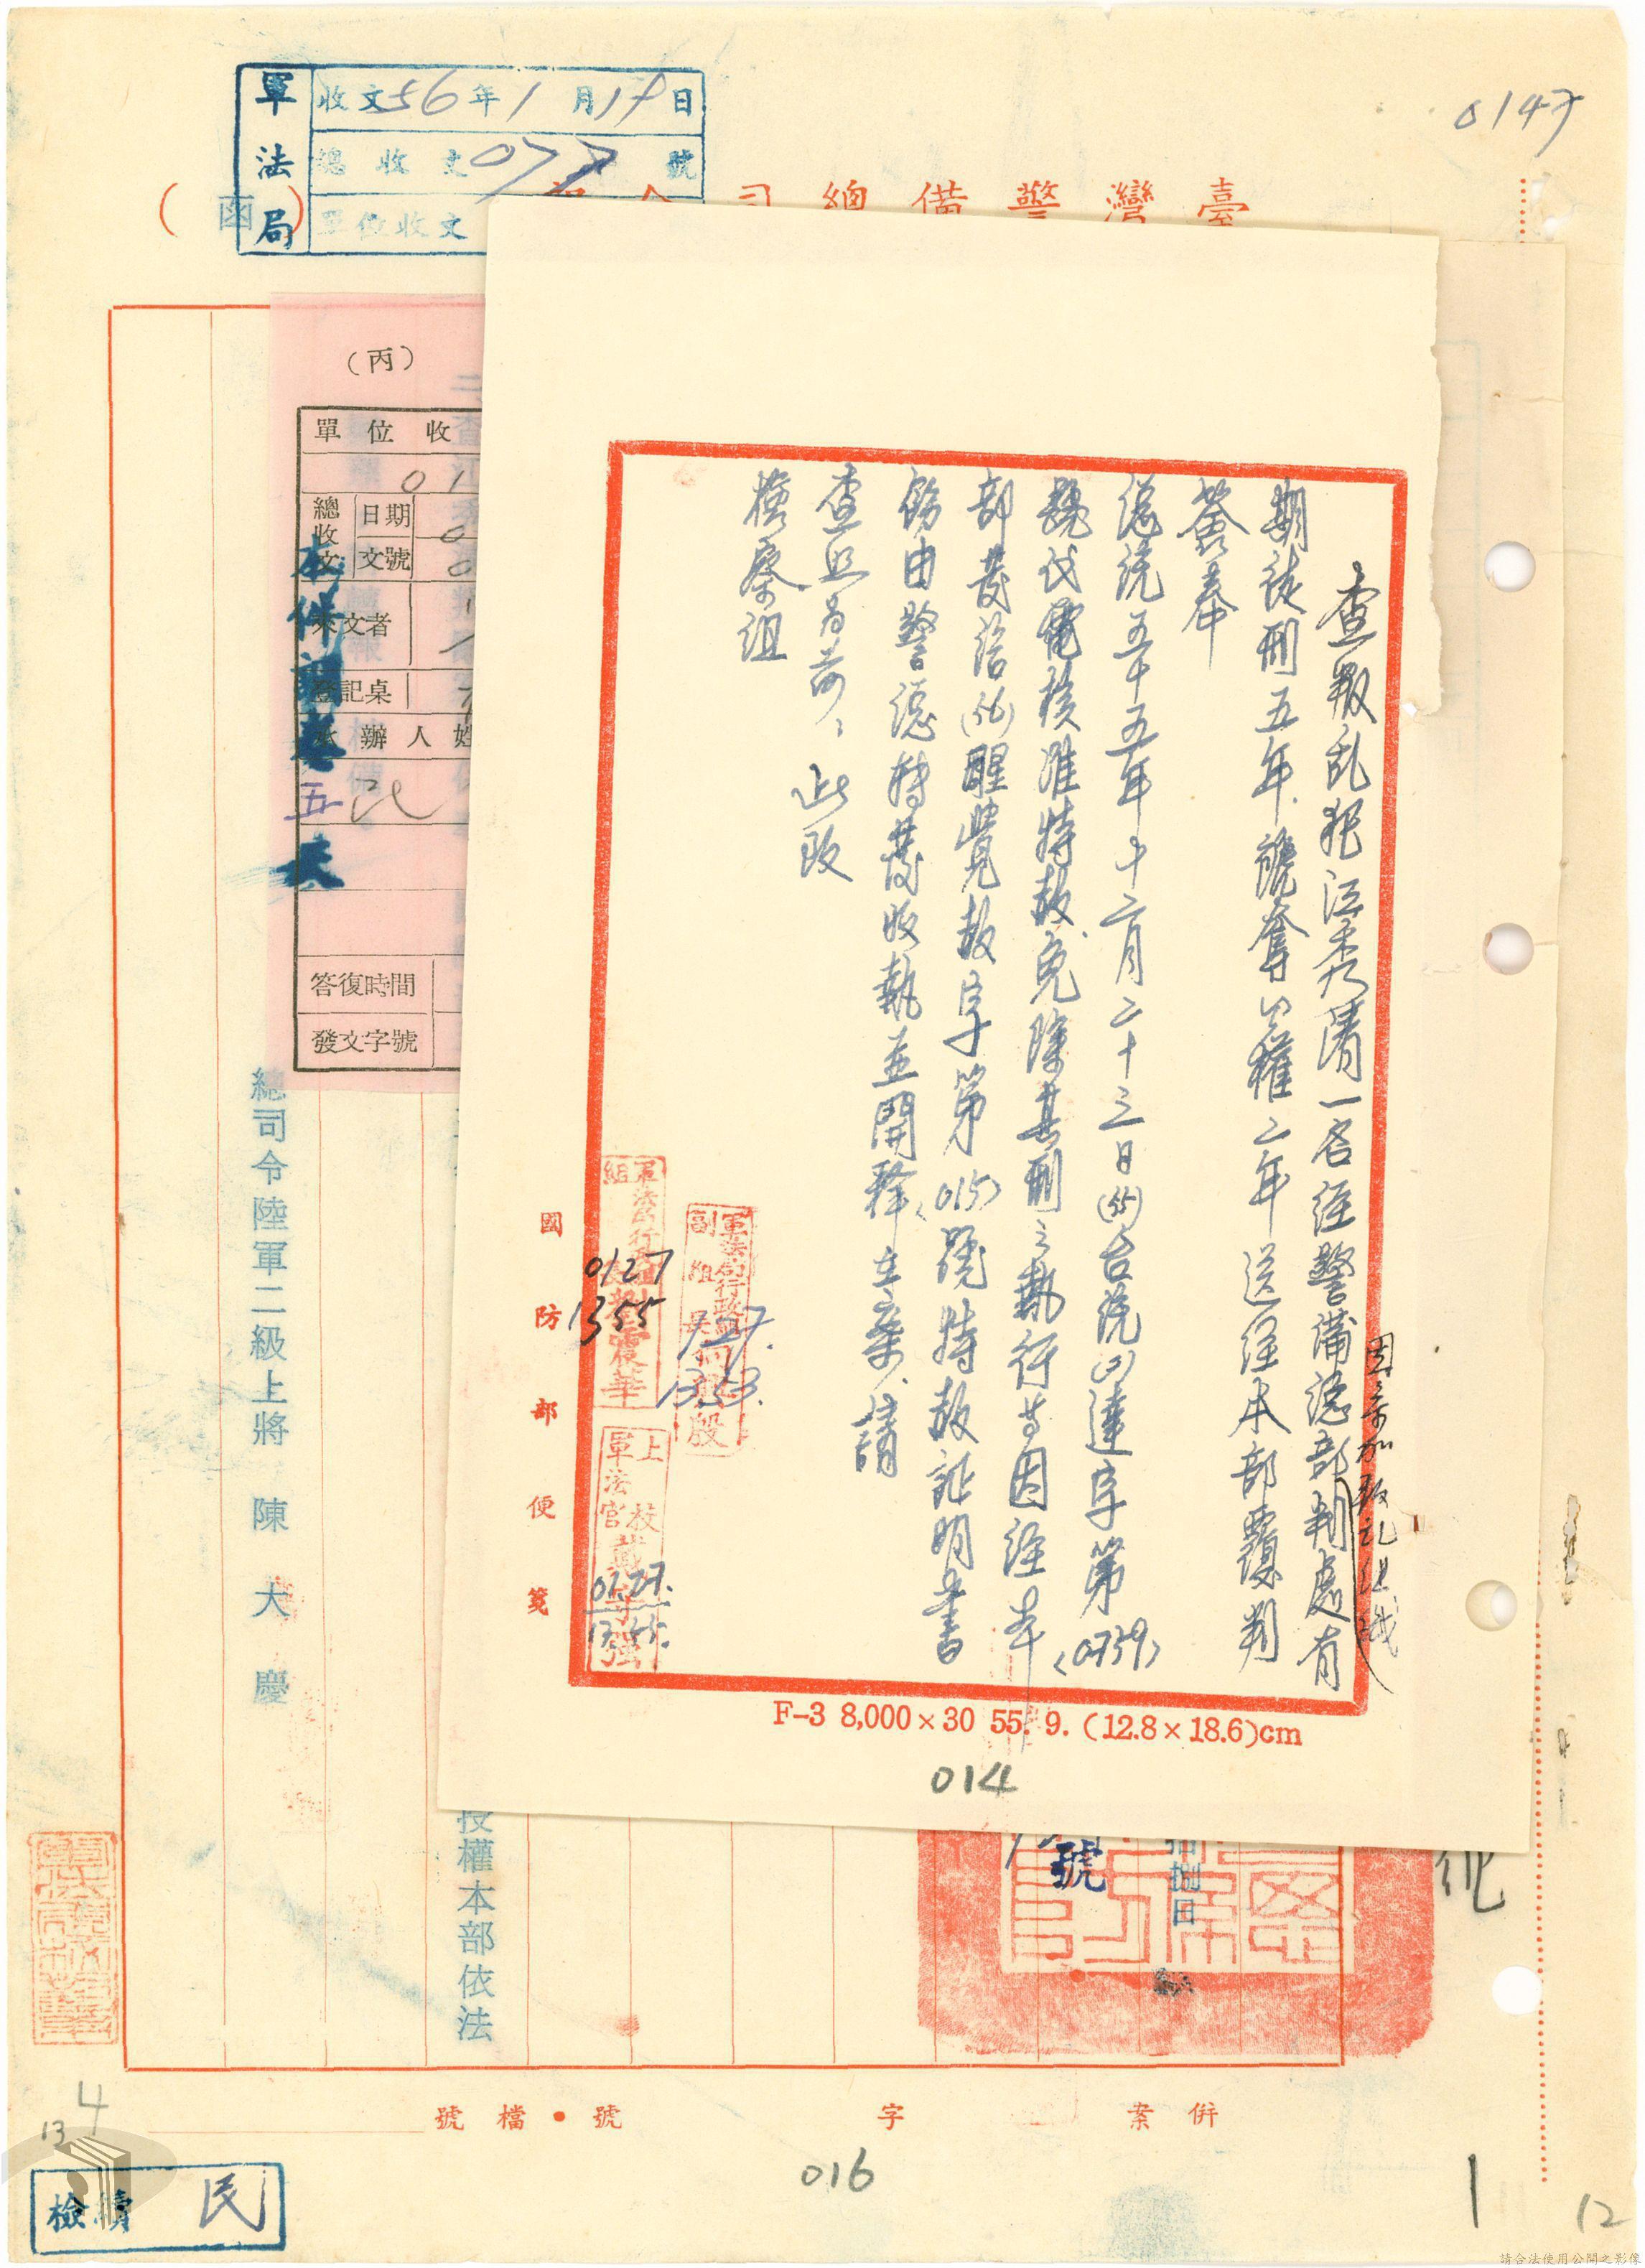 0147
軍法局
收文56年1月17日
總收文077號
單位收文
臺灣警備總司令部
(函)
查叛乱犯江秀清一名經警備總部判處有
因參加叛乱組織
期徒刑五年褫奪公權二年送經本部覆判
簽奉
總統五十五年十二月二十三日(55)台統(二)達字第(0739)
號代電核准特赦免除其刑之執行等因經本
部發給(56)醒覺赦字第(015)號特赦証明書
飭由警總轉發收執並開釋在案請
查照為荷、此致
檢察組
軍法局行政組
副組長
1.27.
1353.
軍法局行政組組長劉霞華
0127
1355
上校軍法官
01.27.
國防部便箋
F-3 8,000×30 55. 9. (12.8×18.6)cm
014
(丙)
單位收
01
總收文
日期
文號
來文者
登記桌
承辦人姓
答復時間
發文字號
本件調卷
五
號
拾捌日
授權本部依法
總司令陸軍二級上將 陳大慶
併案
字
號•檔號
016
13
4
檢續
民
1
12
請合法使用公開之影像